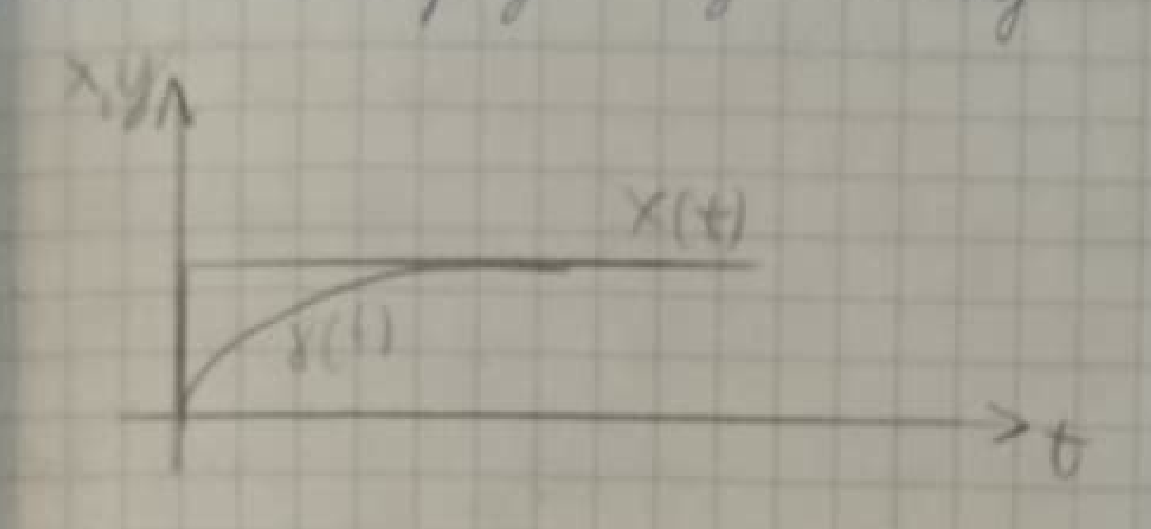 x,y
x(t)
y(t)
t